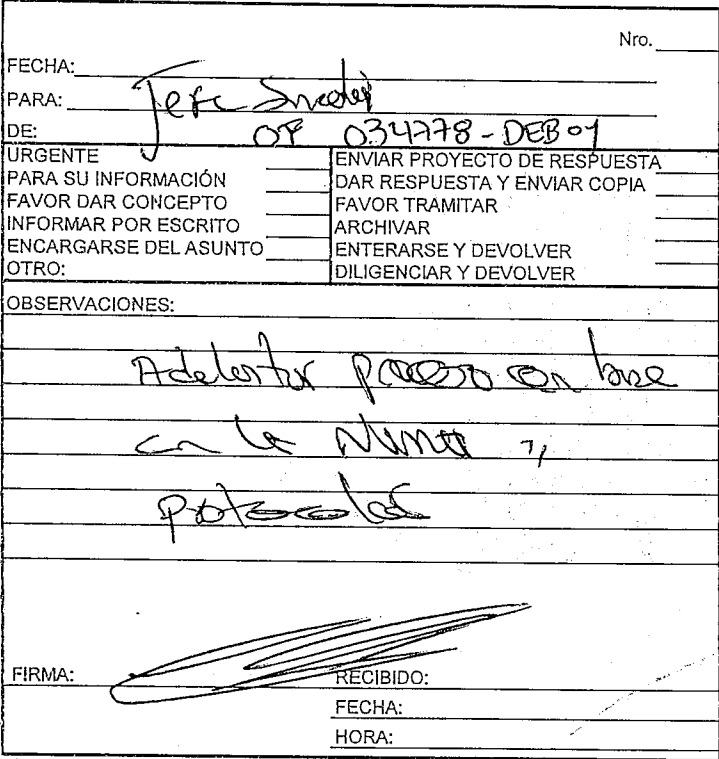 Nro.
FECHA:
PARA: Jefe
DE: OF 034778-DEB 01
URGENTE
PARA SU INFORMACIÓN
FAVOR DAR CONCEPTO
INFORMAR POR ESCRITO
ENCARGARSE DEL ASUNTO
OTRO:
ENVIAR PROYECTO DE RESPUESTA
DAR RESPUESTA Y ENVIAR COPIA
FAVOR TRAMITAR
ARCHIVAR
ENTERARSE Y DEVOLVER
DILIGENCIAR Y DEVOLVER
OBSERVACIONES:
Adelantar proceso con base
en la Norma y
protocolos
FIRMA:
RECIBIDO:
FECHA:
HORA: